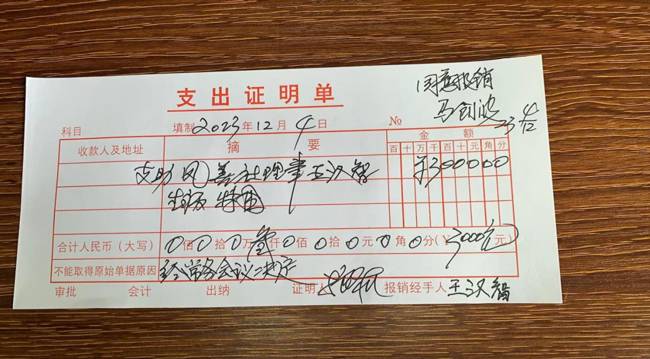 支出证明单
同意报销
马剑波
23 4/12
科目
填制2023年12月4日
No
收款人及地址 摘要 金额
百十万千百十元角分
支助凤善社理事王汉智 ¥300000
出版
合计人民币（大写）0佰0拾0万叁仟0佰0拾0元0角0分（¥3000元）
不能取得原始单据原因 经常务会议
审批 会计 出纳 证明 报销经手人 王汉智